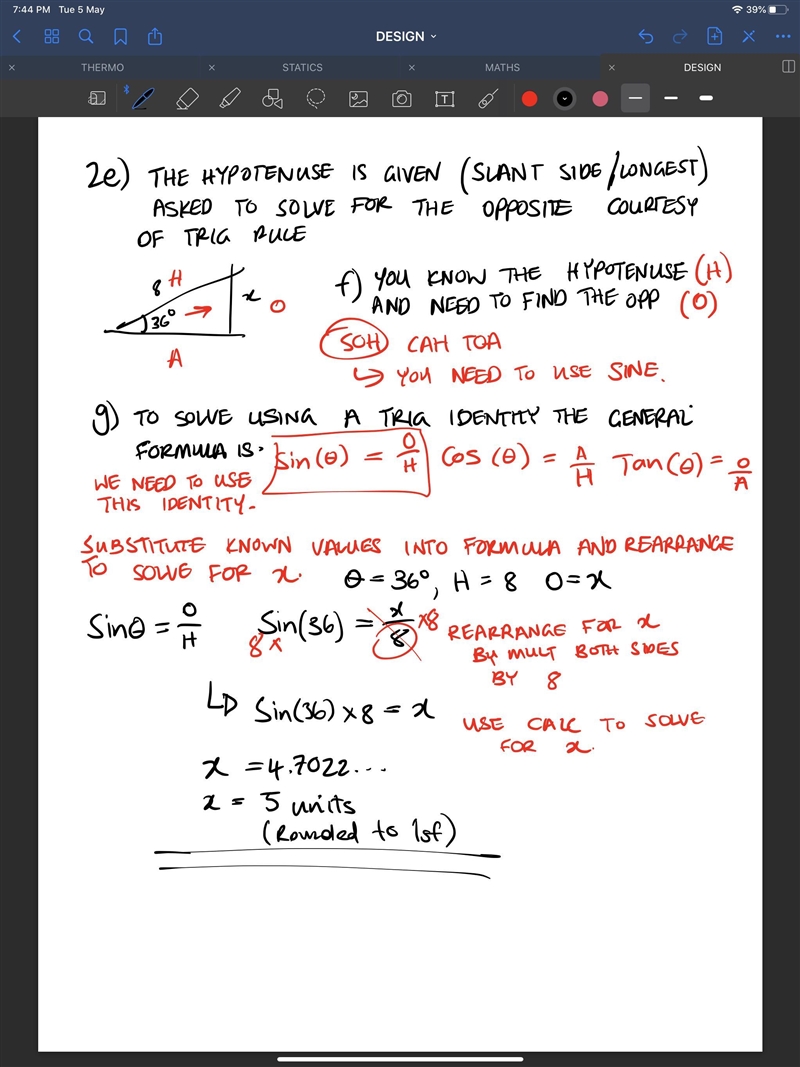 7:44 PM Tue 5 May
39%
DESIGN
THERMO
STATICS
MATHS
DESIGN
2e) THE HYPOTENUSE IS GIVEN (SLANT SIDE/LONGEST)
ASKED TO SOLVE FOR THE OPPOSITE COURTESY
OF TRIG RULE
8 H
36°
x O
A
f) YOU KNOW THE HYPOTENUSE (H)
AND NEED TO FIND THE OPP (O)
SOH CAH TOA
↳ YOU NEED TO USE SINE.
g) TO SOLVE USING A TRIG IDENTITY THE GENERAL
FORMULA IS:
Sin(θ) = O/H Cos(θ) = A/H Tan(θ) = O/A
WE NEED TO USE
THIS IDENTITY.
SUBSTITUTE KNOWN VALUES INTO FORMULA AND REARRANGE
TO SOLVE FOR x. θ = 36°, H = 8 O = x
Sinθ = O/H
8× Sin(36) = x/8 ×8
REARRANGE FOR x
BY MULT BOTH SIDES
BY 8
↳ Sin(36) × 8 = x
USE CALC TO SOLVE
FOR x.
x = 4.7022...
x = 5 units
(Rounded to 1sf)